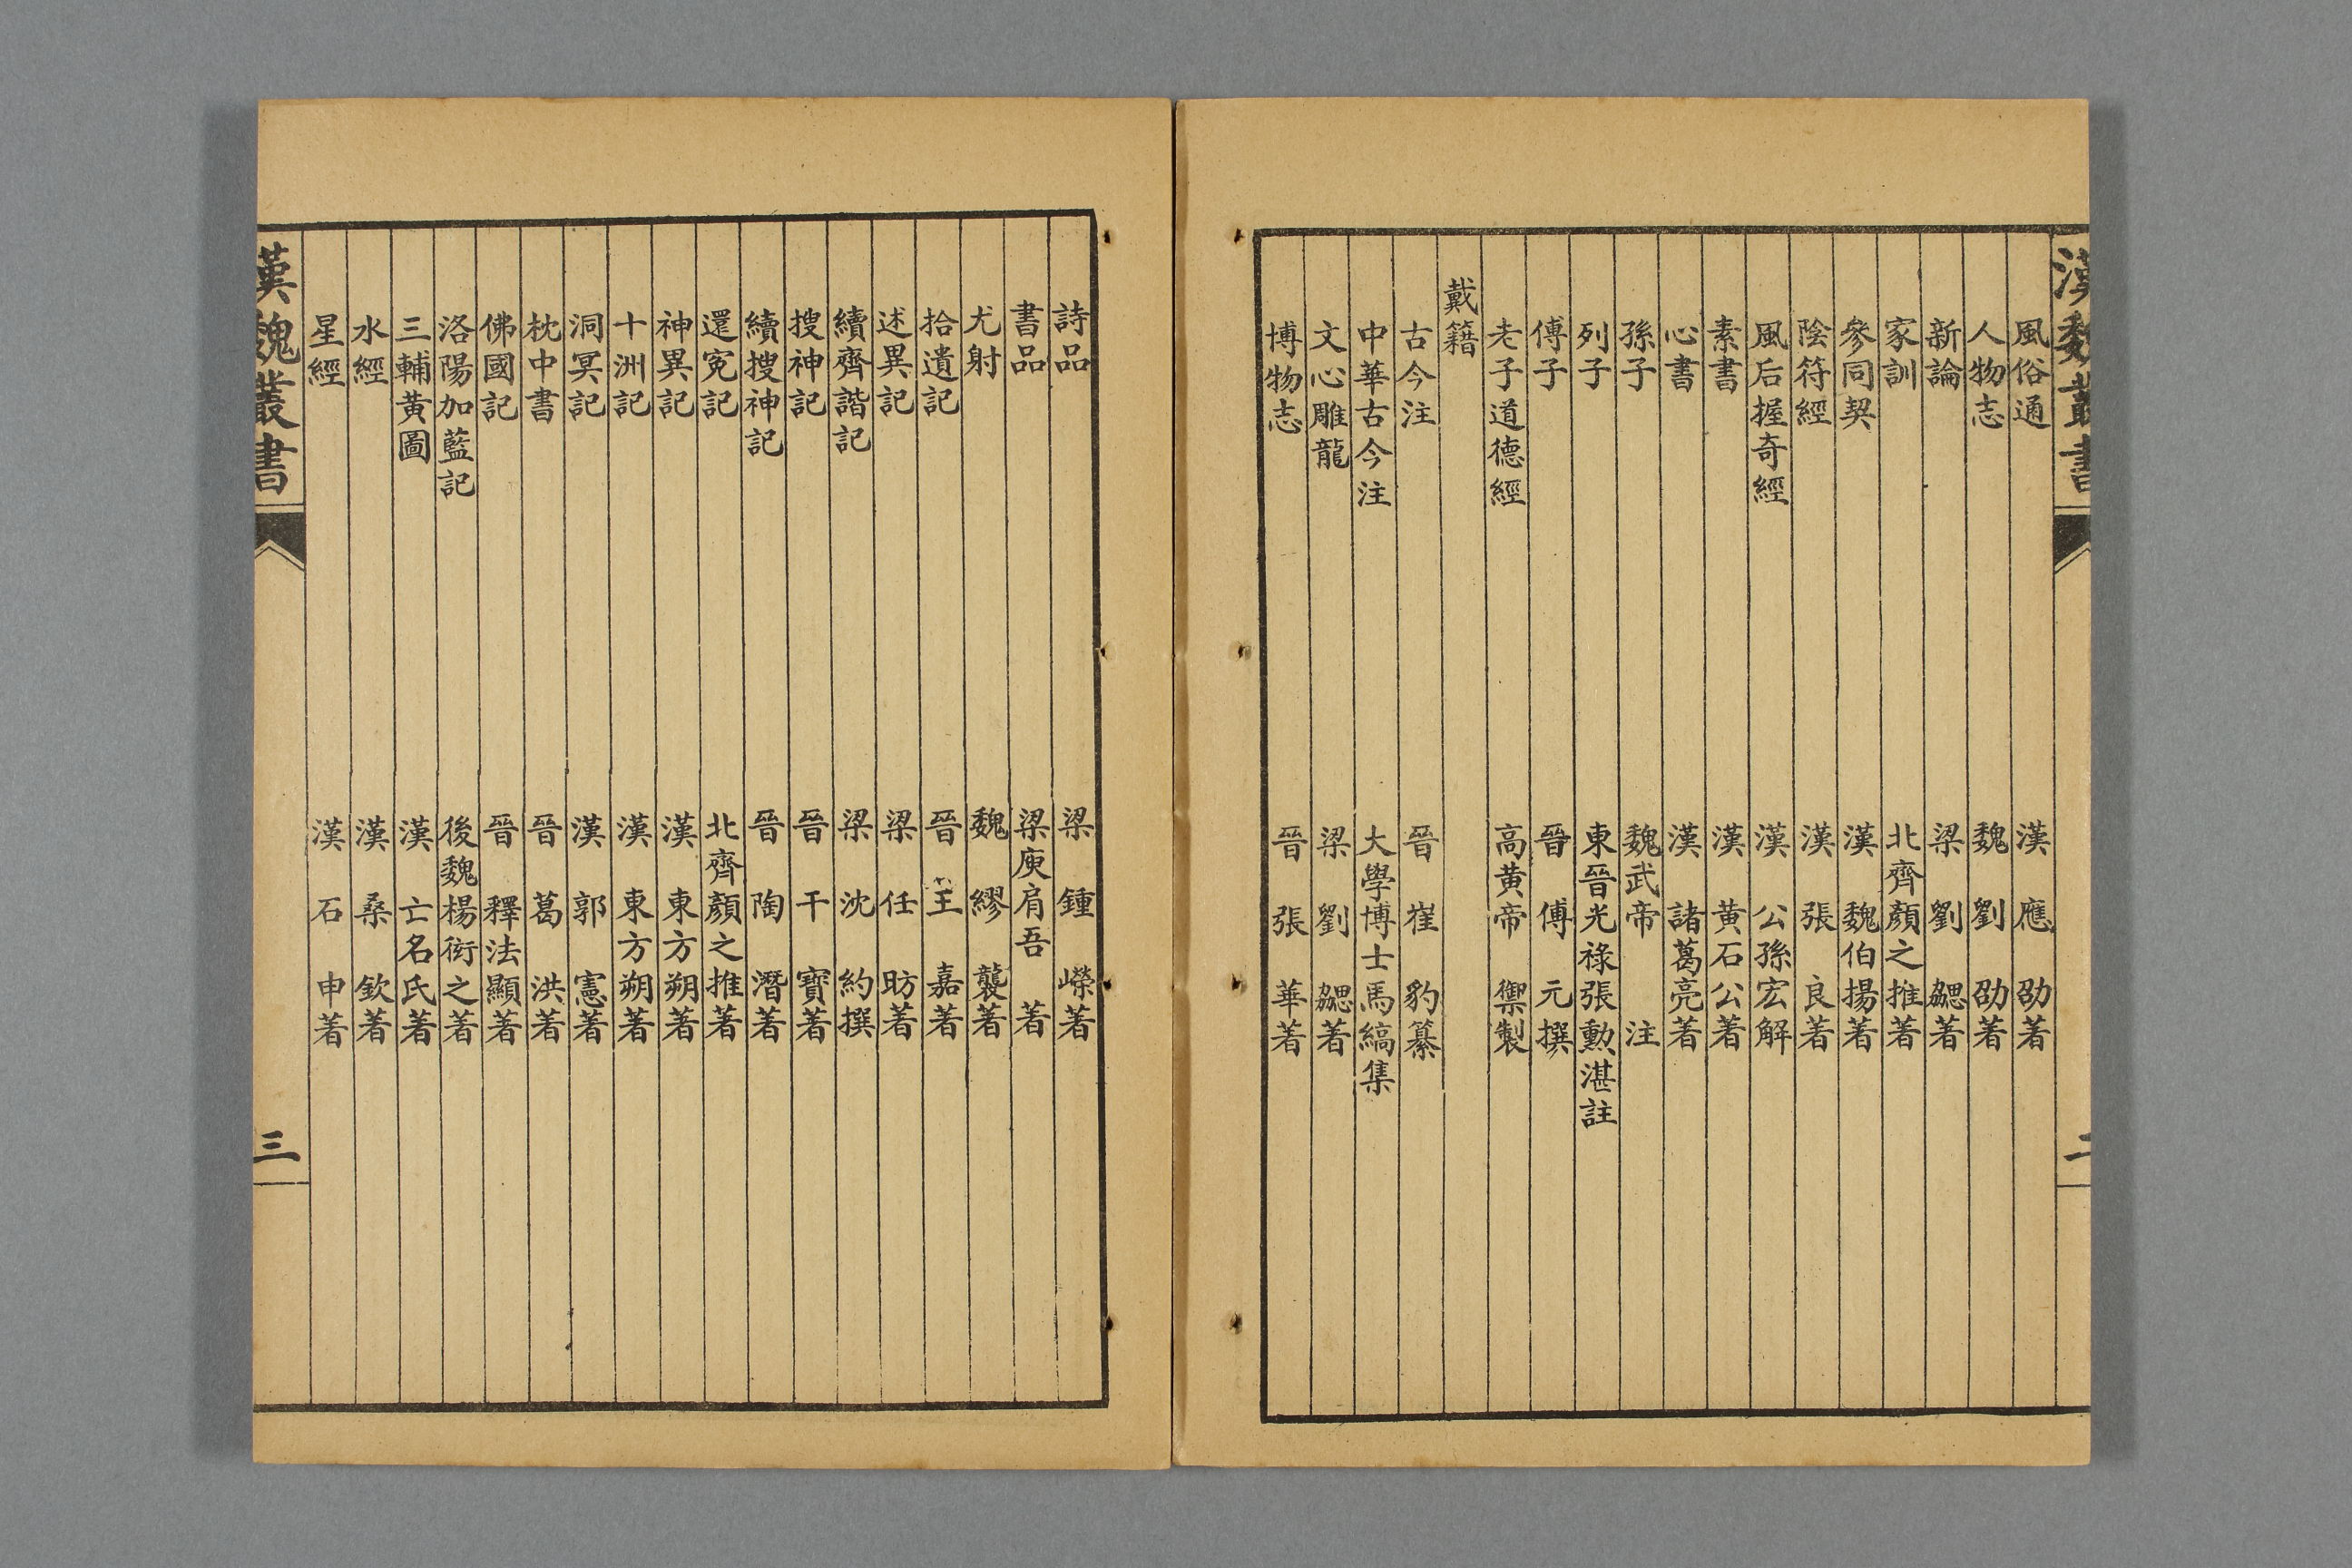 漢魏叢書
二
風俗通 漢應劭著
人物志 魏劉劭著
新論 梁劉勰著
家訓 北齊顏之推著
參同契 漢魏伯揚著
陰符經 漢張良著
風后握奇經 漢公孫宏解
素書 漢黃石公著
心書 漢諸葛亮著
孫子 魏武帝注
列子 東晉光祿張勲湛註
傅子 晉傅元撰
老子道德經 高黃帝禦製
戴籍
古今注 晉崔豹纂
中華古今注 大學博士馬縞集
文心雕龍 梁劉勰著
博物志 晉張華著
詩品 梁鍾嶸著
書品 梁庾肩吾著
尤射 魏繆襲著
拾遺記 晉王嘉著
述異記 梁任昉著
續齊諧記 梁沈約撰
搜神記 晉干寶著
續搜神記 晉陶潛著
還冤記 北齊顏之推著
神異記 漢東方朔著
十洲記 漢東方朔著
洞冥記 漢郭憲著
枕中書 晉葛洪著
佛國記 晉釋法顯著
洛陽加藍記 後魏楊衒之著
三輔黃圖 漢亡名氏著
水經 漢桑欽著
星經 漢石申著
漢魏叢書
三